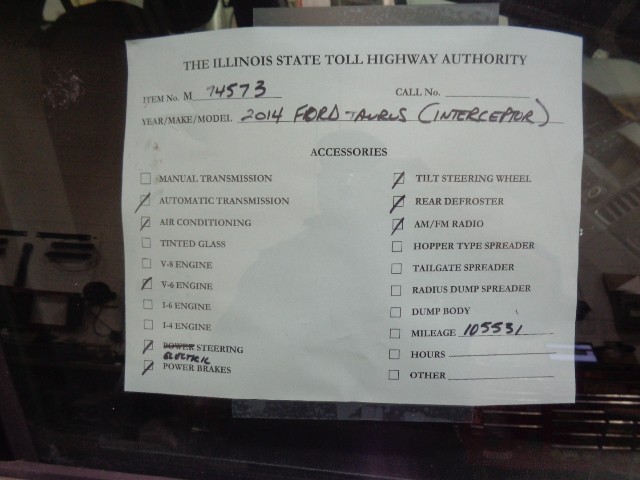 THE ILLINOIS STATE TOLL HIGHWAY AUTHORITY
ITEM No. M 74573 CALL No.
YEAR/MAKE/MODEL 2014 FORD TAURUS (INTERCEPTOR)
ACCESSORIES
MANUAL TRANSMISSION
AUTOMATIC TRANSMISSION
AIR CONDITIONING
TINTED GLASS
V-8 ENGINE
V-6 ENGINE
I-6 ENGINE
I-4 ENGINE
POWER STEERING
ELECTRIC
POWER BRAKES
TILT STEERING WHEEL
REAR DEFROSTER
AM/FM RADIO
HOPPER TYPE SPREADER
TAILGATE SPREADER
RADIUS DUMP SPREADER
DUMP BODY
MILEAGE 105531
HOURS
OTHER